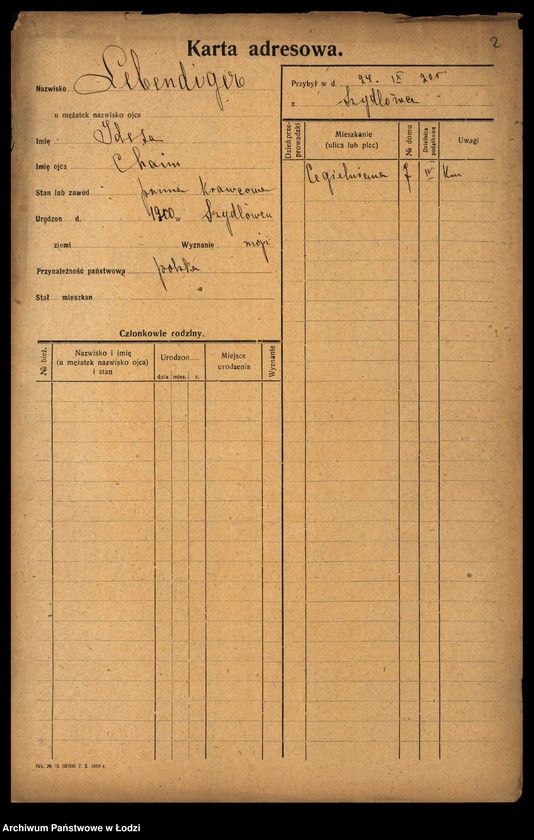 2
Karta adresowa.
Nazwisko Lebendiger
u mężatek nazwisko ojca
Imię Idesa
Imię ojca Chaim
Stan lub zawód panna Krawcowa
Urodzon d. 1900 w Szydłówcu
ziemi Wyznanie mojż
Przynależność państwowa polska
Stał mieszkan
Przybył w d. 24. IX 20r
z Szydłówca
Dzień przeprowadzki
Mieszkanie (ulica lub plec)
№ domu
Dzielnica podatkowa
Uwagi
Cegielniana 7 IV
Członkowie rodziny.
№ bież.
Nazwisko i imię
(u mężatek nazwisko ojca)
i stan
Urodzon
dnia mies. r.
Miejsce
urodzenia
Wyznanie
Archiwum Państwowe w Łodzi